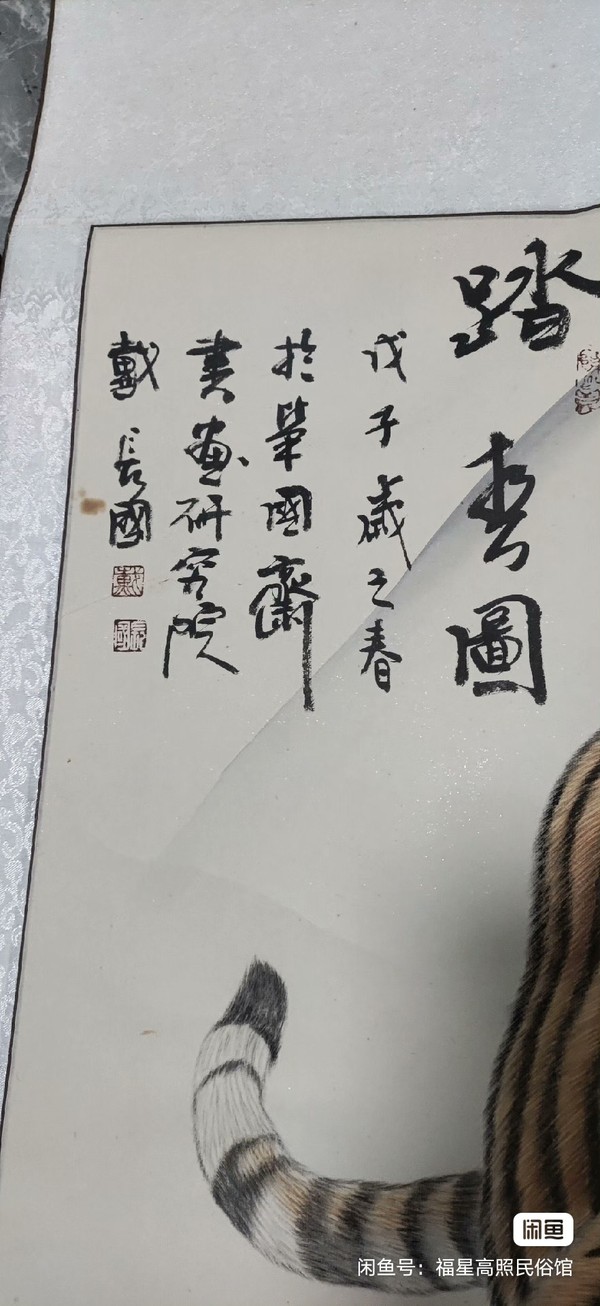 踏圖
戊子歲之春
於華國齋
書畫研究院
戴長國
戴
長國
闲鱼
闲鱼号：福星高照民俗馆